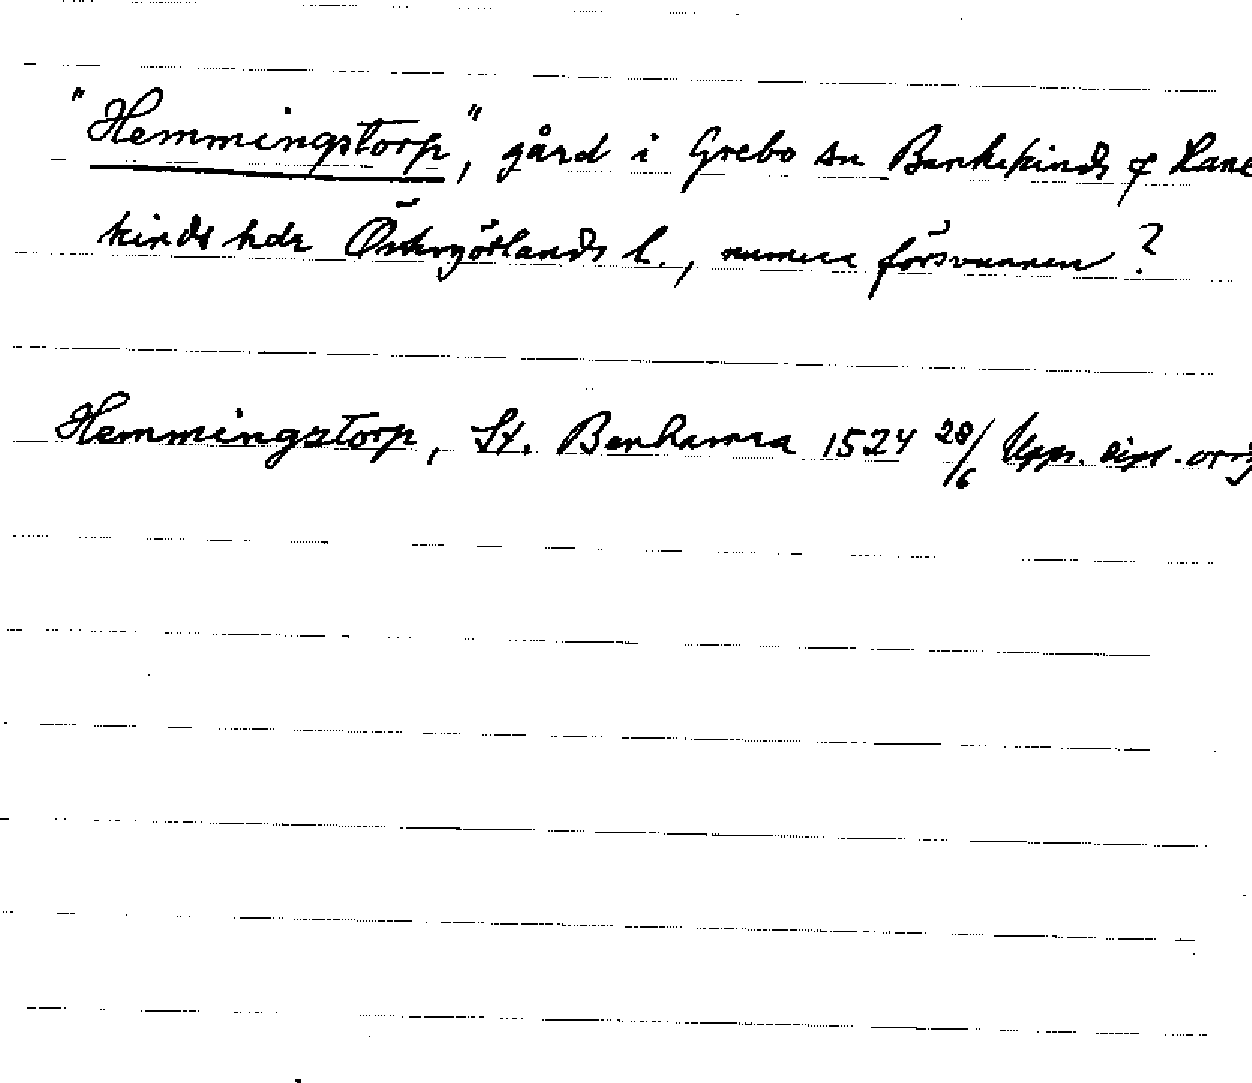 "Hemmingstorp", gård i Grebo sn Bankekinds f Hane
kinds hdr Östergötlands l., numera försvunnen?
Hemmingstorp, St. Benhamra 1524 28/6 Upps. dipl. orig